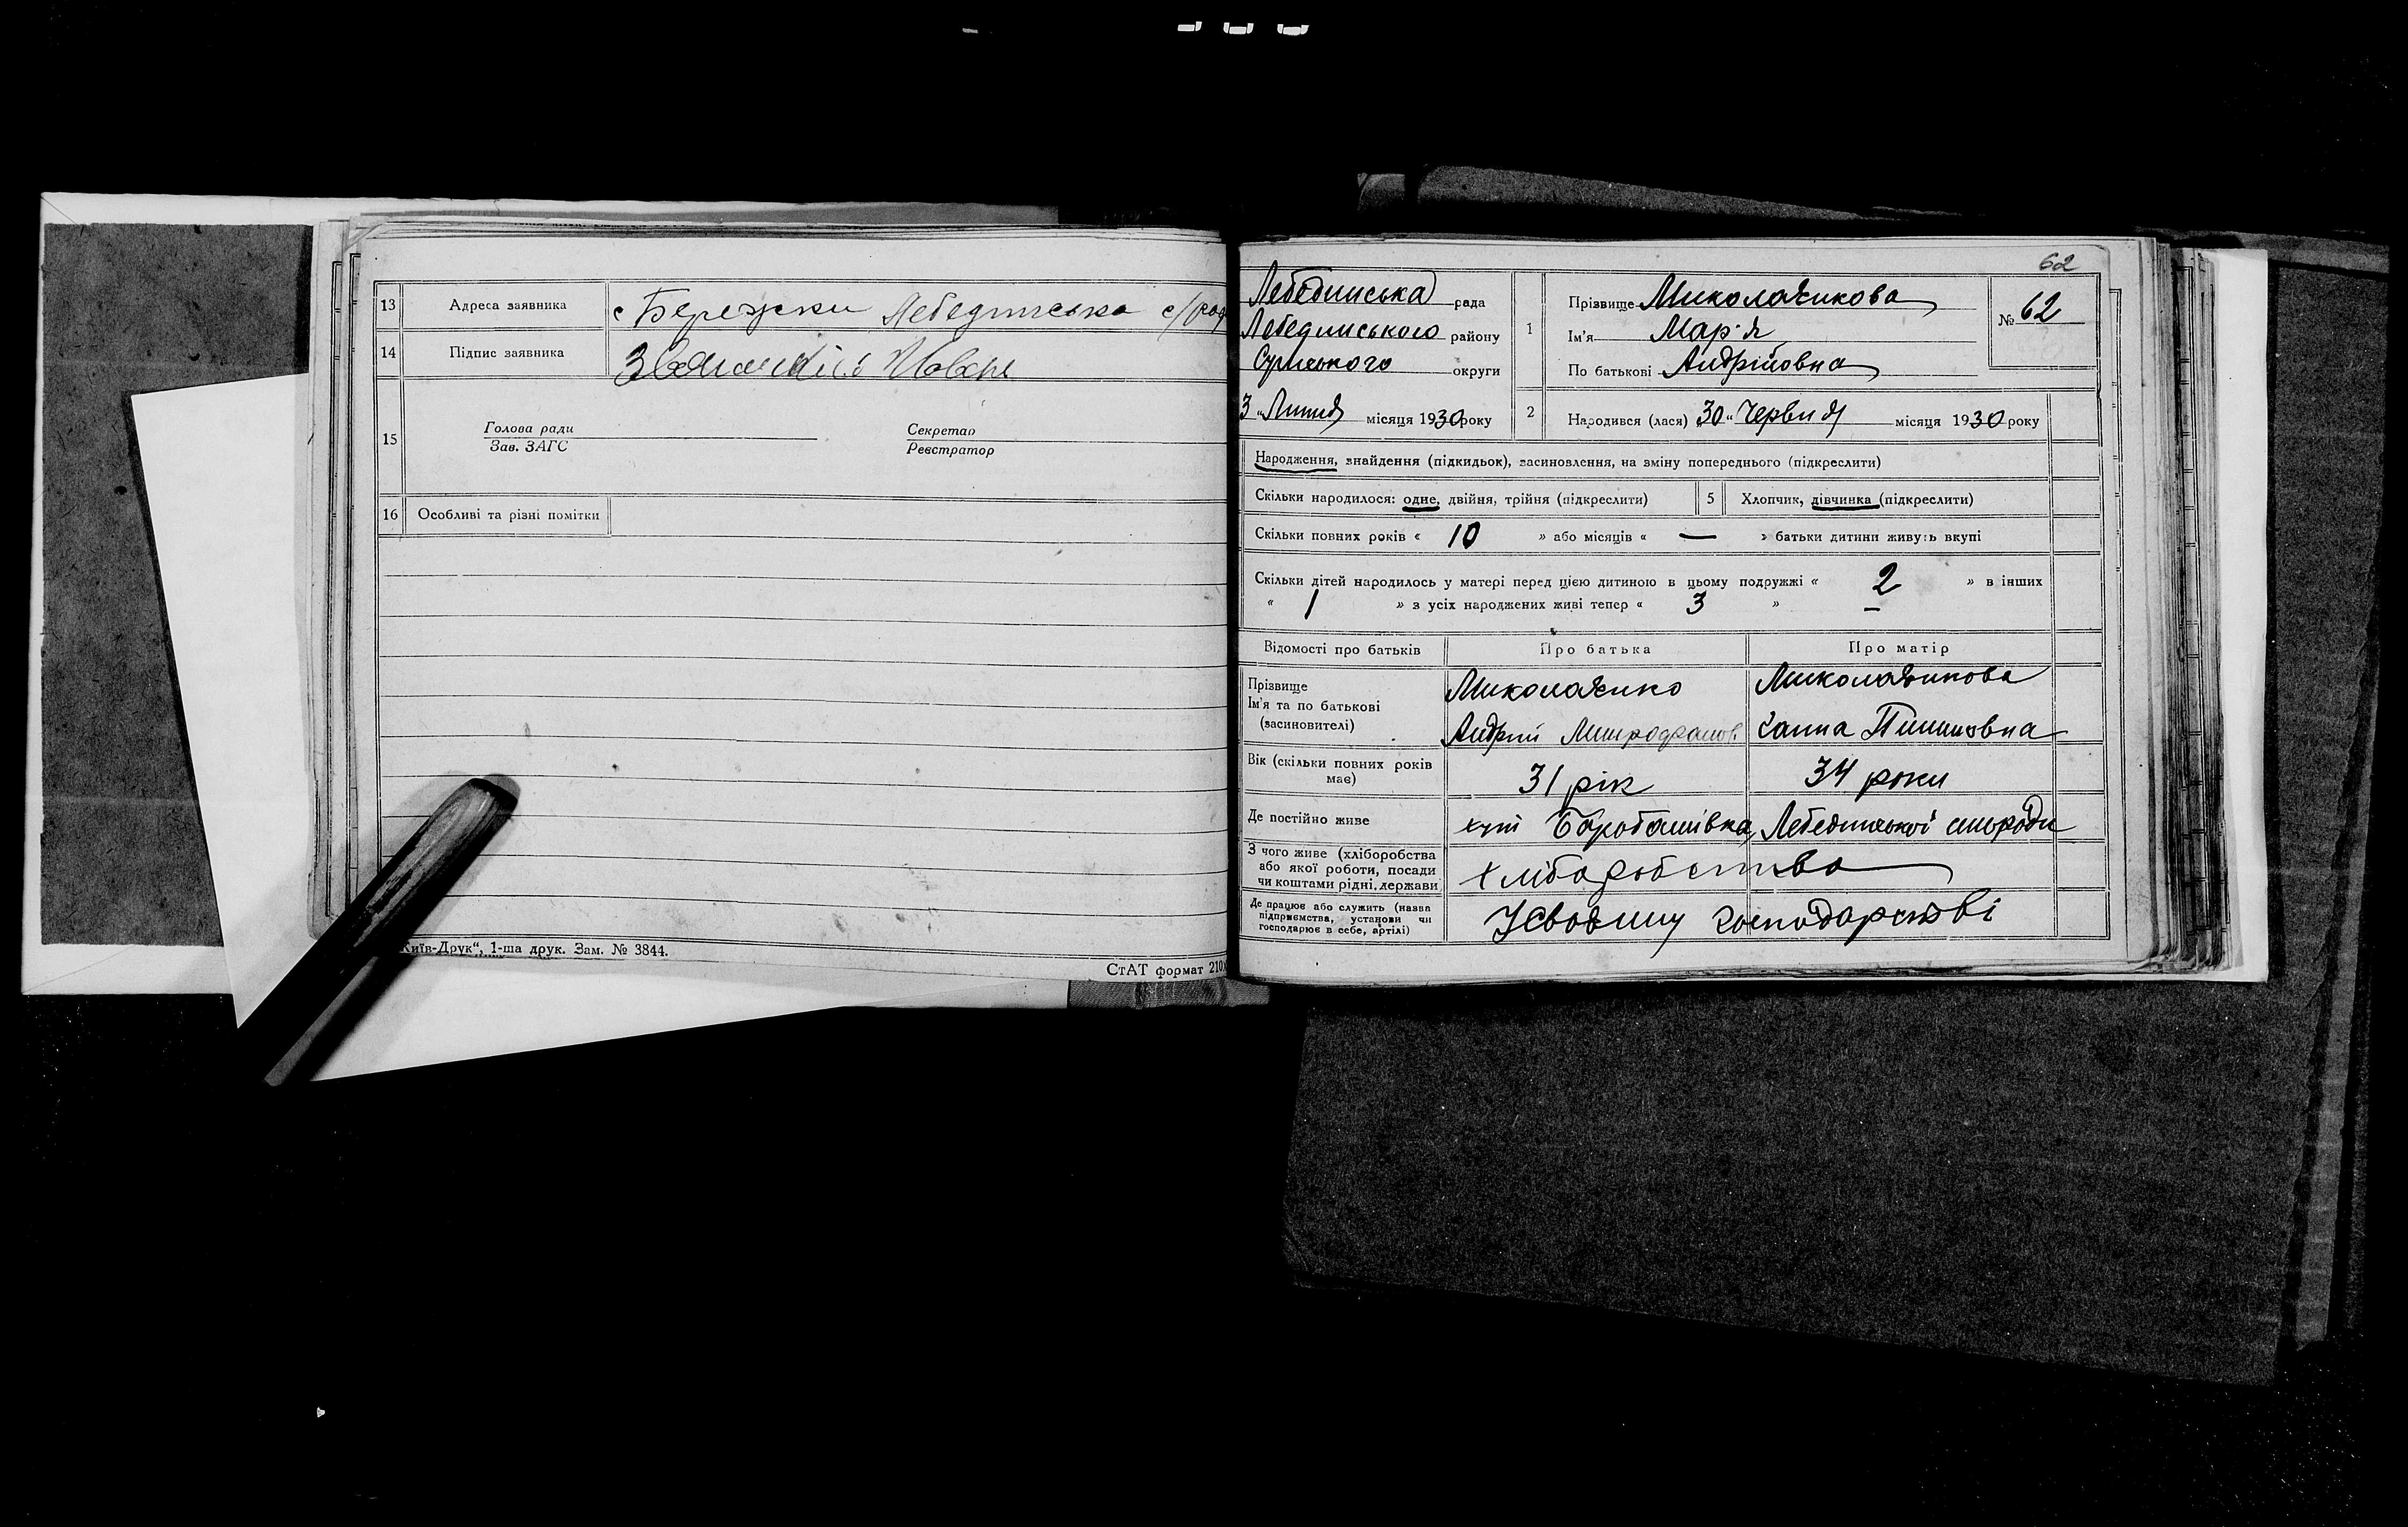 13 Адреса заявника с Бережки Лебединська с/рад
14 Підпис заявника
15 Голова ради Секретар
Зав. ЗАГС Реєстратор
16 Особливі та різні помітки
Київ-Друк“, 1-ша друк. Зам. № 3844.
СтАТ формат 210
62
Лебединська рада
Лебединського району
Сумського округи
3 „Липня місяця 1930 року
1 Прізвище Миколаенкова
Ім'я Мар'я
По батькові Андрійовна
№ 62
2 Народився (лася) 30 “ Червня місяця 1930 року
Народження, знайдення (підкидьок), засиновлення, на зміну попереднього (підкреслити)
Скільки народилося: одне, двійня, трійня (підкреслити) 5 Хлопчик, дівчинка (підкреслити)
Скільки повних років « 10 » або місяців « — » батьки дитини живуть вкупі
Скільки дітей народилось у матері перед цією дитиною в цьому подружжі « 2 » в інших
« 1 » з усіх народжених живі тепер « 3 »
Відомості про батьків Про батька Про матір
Прізвище
Ім'я та по батькові
(засиновителі)
Миколаенко Миколаенкова
Андрій Митрофанов. Ганна Пилиповна
Вік (скільки повних років має) 31 рік 34 роки
Де постійно живе хут Барабашівка, Лебединської сільради
З чого живе (хліборобства
або якої роботи, посади
чи коштами рідні, держави
хліборобства
Де працює або служить (назва
підприємства, установи чи
господарює в себе, артілі)
У своєму господарстві